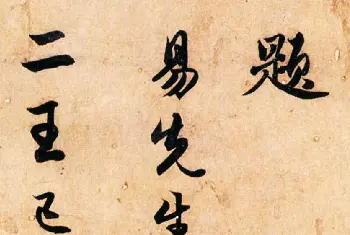 题
易先生
二王已